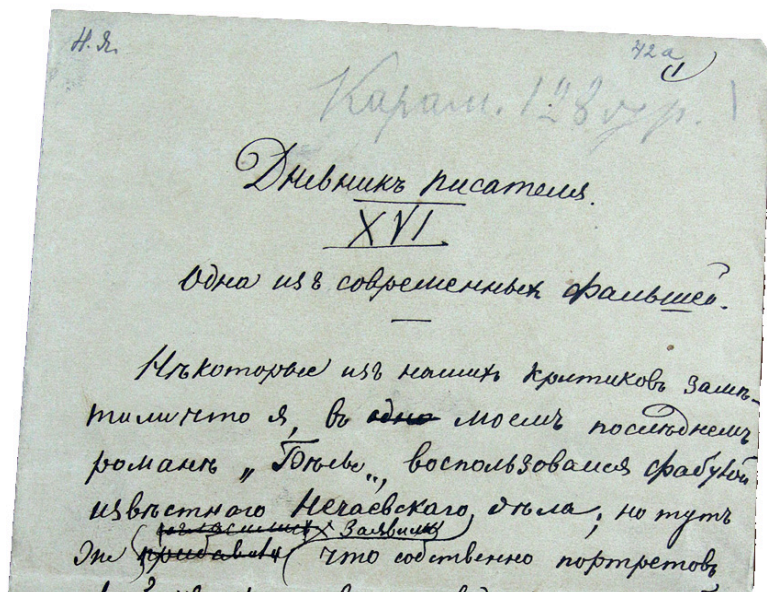 Н. Я.
42а
1
Карам. 128
Дневникъ писателя.
XVI.
Одна изъ современныхъ фальшей.
Нѣкоторые изъ нашихъ критиковъ замѣ-
тили что я, въ одно моемъ послѣднемъ
романѣ „Бѣсы„, воспользовался фабулой
извѣстнаго Нечаевскаго дѣла; но тутъ
заявили
же прибавили что собственно портретовъ